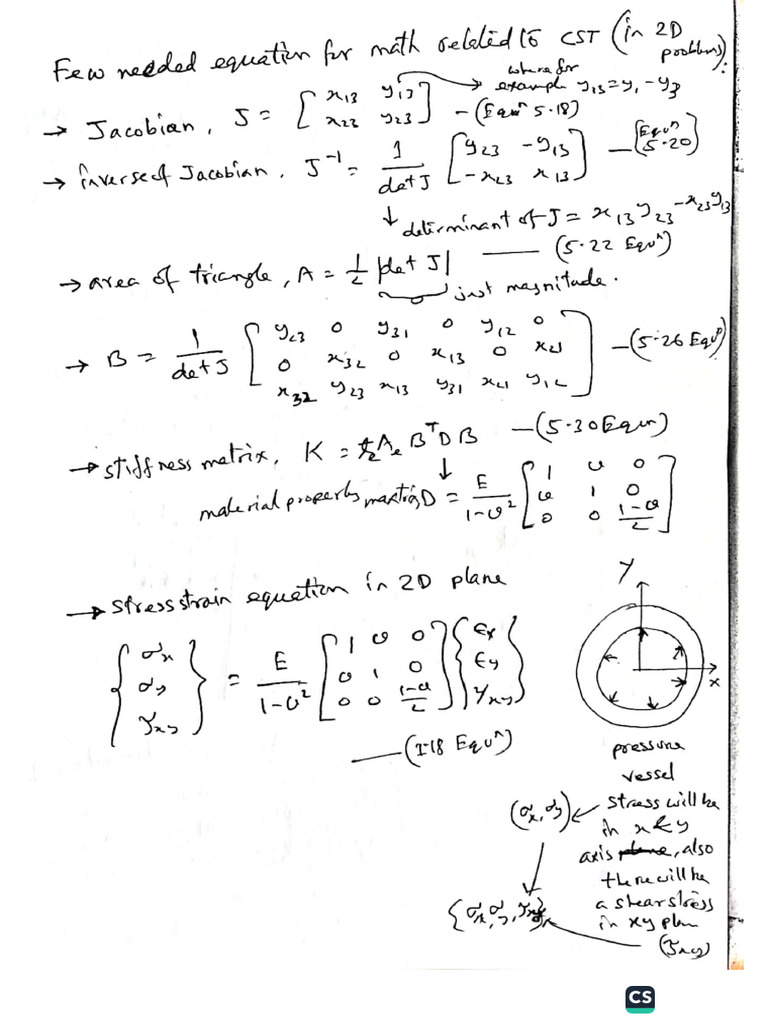 Few needed equation for math related to CST (in 2D problem):
→ Jacobian, J = [ x13 y13 ; x23 y23 ] – (Equn 5.18)
where for example y13 = y1 - y3
→ inverse of Jacobian, J^-1 = 1/det J [ y23 -y13 ; -x23 x13 ] – [Equn 5.20]
↓ determinant of J = x13 y23 - x23 y13
→ area of triangle, A = 1/2 |det J| — (5.22 Equn)
just magnitude.
→ B = 1/det J [ y23 0 y31 0 y12 0 ; 0 x32 0 x13 0 x21 ; x32 y23 x13 y31 x21 y12 ] – (5.26 Equn)
→ stiffness matrix, K = t Ae B^T D B – (5.30 Equn)
↓
material property D = E/1-υ^2 [ 1 υ 0 ; υ 1 0 ; 0 0 1-υ/2 ]
→ stress strain equation in 2D plane
{ σx ; σy ; τxy } = E/1-υ^2 [ 1 υ 0 ; υ 1 0 ; 0 0 1-υ/2 ] { εx ; εy ; γxy }
— (1.18 Equn)
Y
x
pressure
vessel
(σx, σy) ← stress will be
in x & y
axis, also
there will be
a shear stress
in xy plan
(τxy)
{σx, σy, τxy}
CS